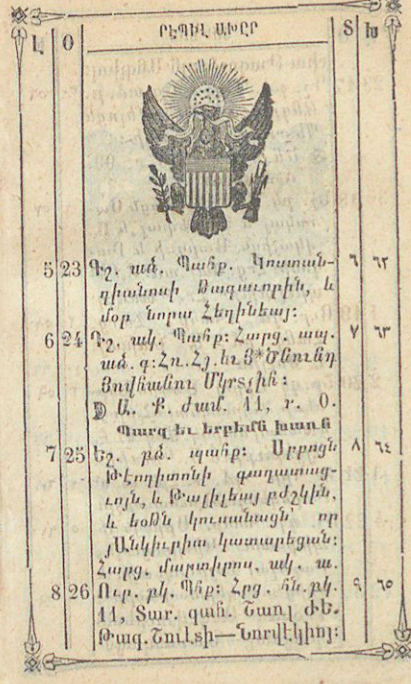 Լ Օ ՐԷՊԻԼ ԱԽԸՐ Տ Խ
5 23 Դշ. ած. Պահք. Կոստան- ٦ ٦٢
դիանոսի Թագաւորին, և
մօր նորա Հեղինեայ:
6 24 Դշ. ակ. Պահք: Հարց. ապ. ٧ ٦٣
ած. գ: Հո. Հյ. եւ Յ*Ծնունդ
Յովհաննու Մկրտչին:
Ա. Ք. ժամ. 11, ր. 0.
Պարզ եւ երբեմն խառն
7 25 Եշ. բձ. պահք: Սրբոցն ٨ ٦٤
Թէոդիտոնի գաղատաց-
ւոյն, և Թալիլեայ բժշկին,
և եօթն կուսանացն՝ որ
յԱնկիւրիա կատարեցան:
Հարց. մարտիրոս, ակ. ա.
8 26 Ուր. բկ. Պհք: Հրց. հն. բկ. ٩ ٦٥
11, Տար. գահ. Շառլ ԺԵ.
Թագ. Շուէտի—Նորվէկիոյ: